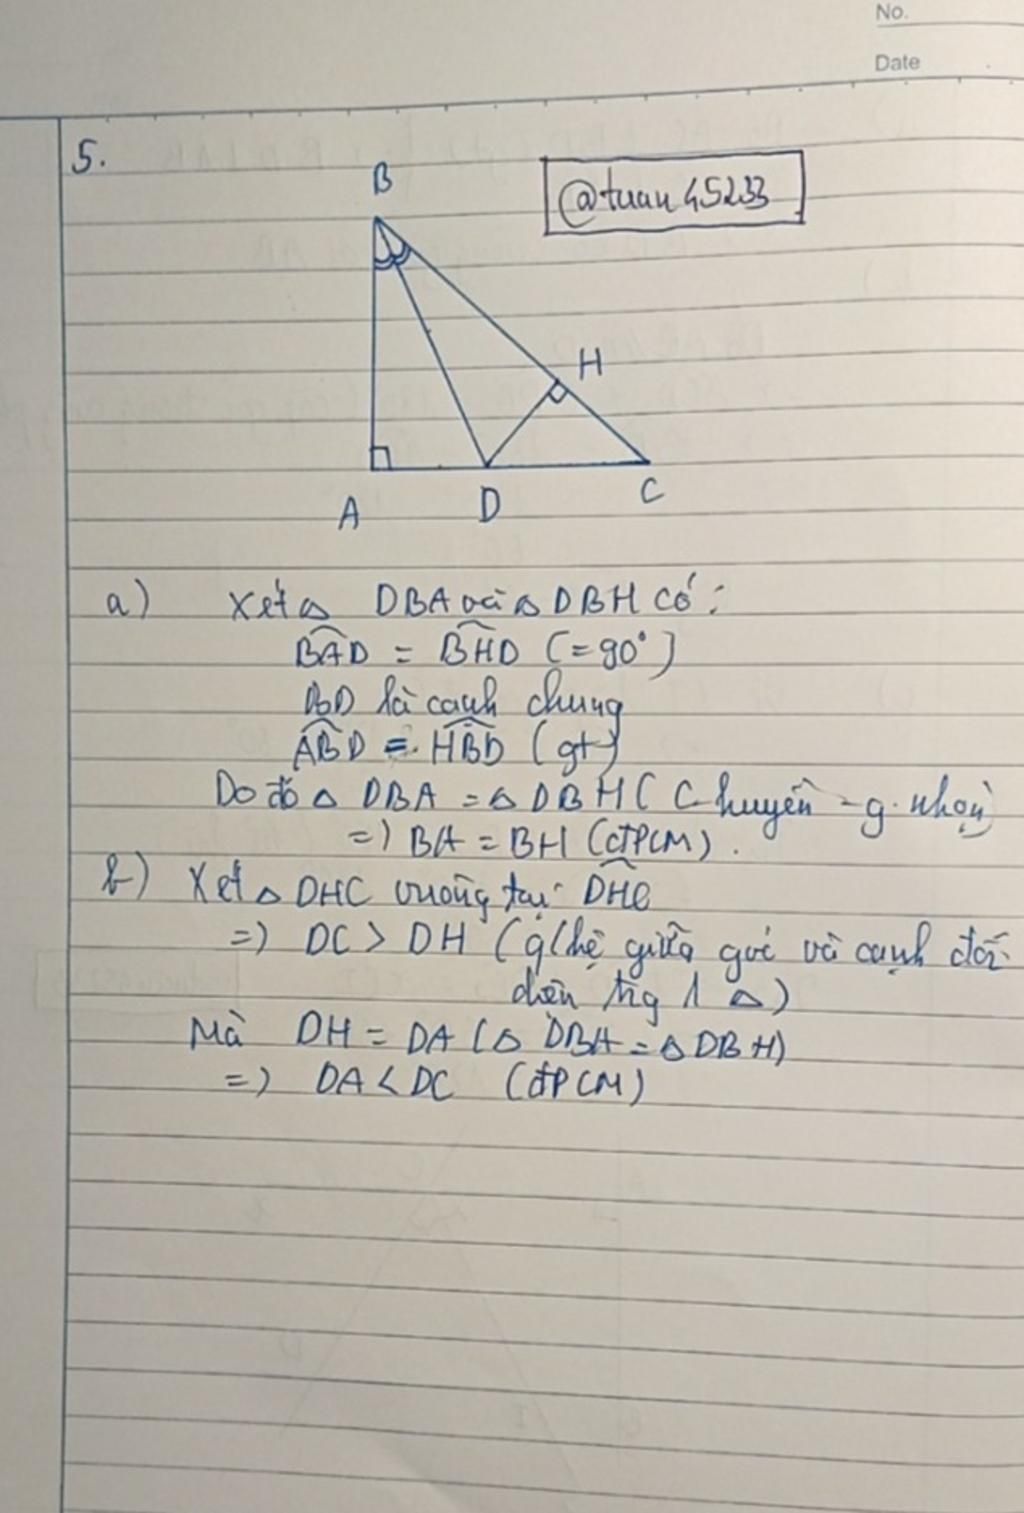 No.
Date
5.
B
@tuan45233
H
A
D
C
a) Xét △ DBA và △ DBH có:
BAD = BHD (=90°)
BD là cạnh chung
ABD = HBD (gt)
Do đó △ DBA = △ DBH (C-huyền - g.nhọn)
=) BA = BH (đPCM).
b) Xét △ DHC vuông tại DHC
=) DC > DH (q/hệ giữa góc và cạnh đối
diện trg 1 △)
Mà DH = DA (△ DBA = △ DBH)
=) DA < DC (đPCM)